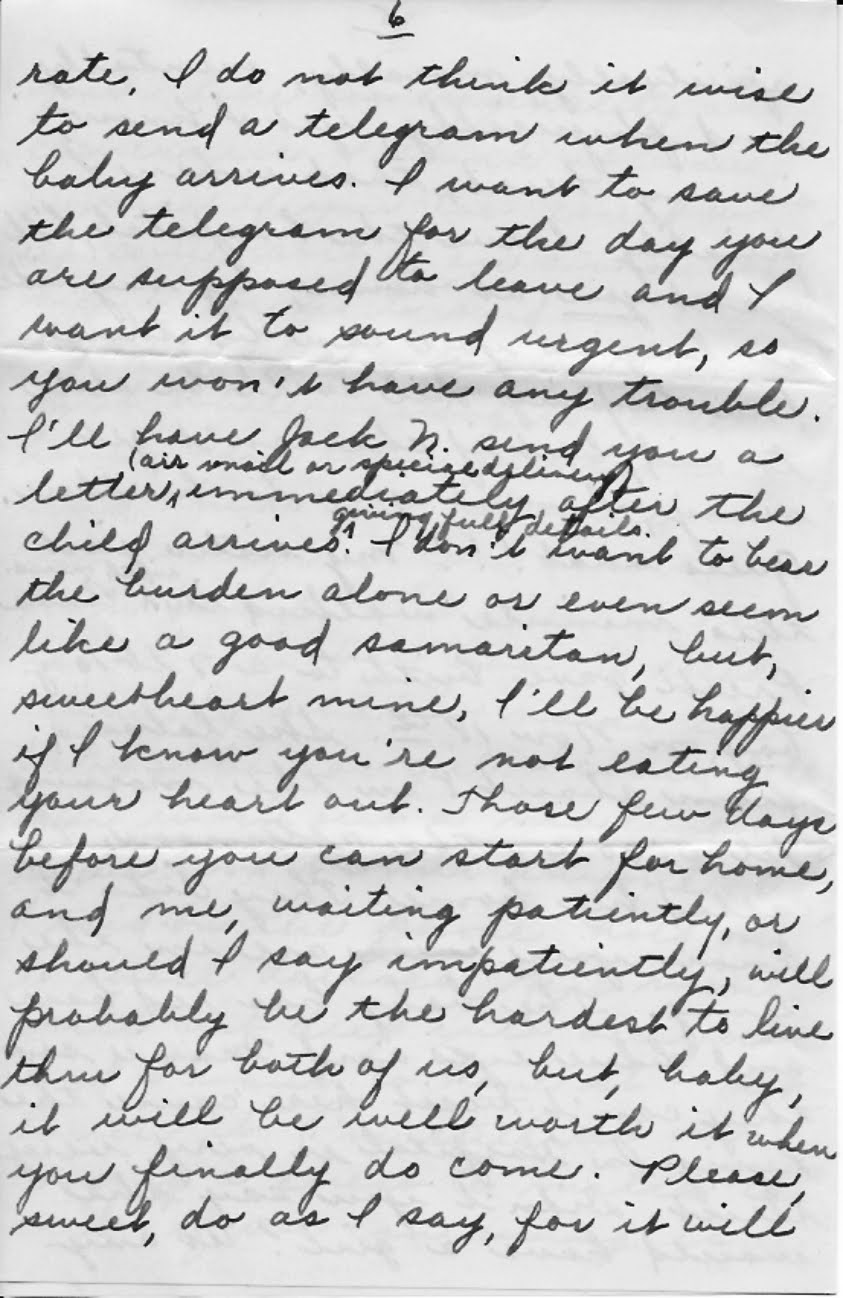 6
rate, I do not think it wise
to send a telegram when the
baby arrives. I want to save
the telegram for the day you
are supposed to leave and I
want it to sound urgent, so
you won't have any trouble.
I'll have Jack N. send you a
(air mail or specize delivery)
letter, immediately after the
giving full details.
child arrives. I don't want to bear
the burden alone or even seem
like a good samaritan, but,
sweetheart mine, I'll be happier
if I know you're not eating
your heart out. Those few days
before you can start for home,
and me, waiting patiently, or
should I say impatiently, will
probably be the hardest to live
thru for both of us, but, baby,
it will be well worth it when
you finally do come. Please,
sweet, do as I say, for it will